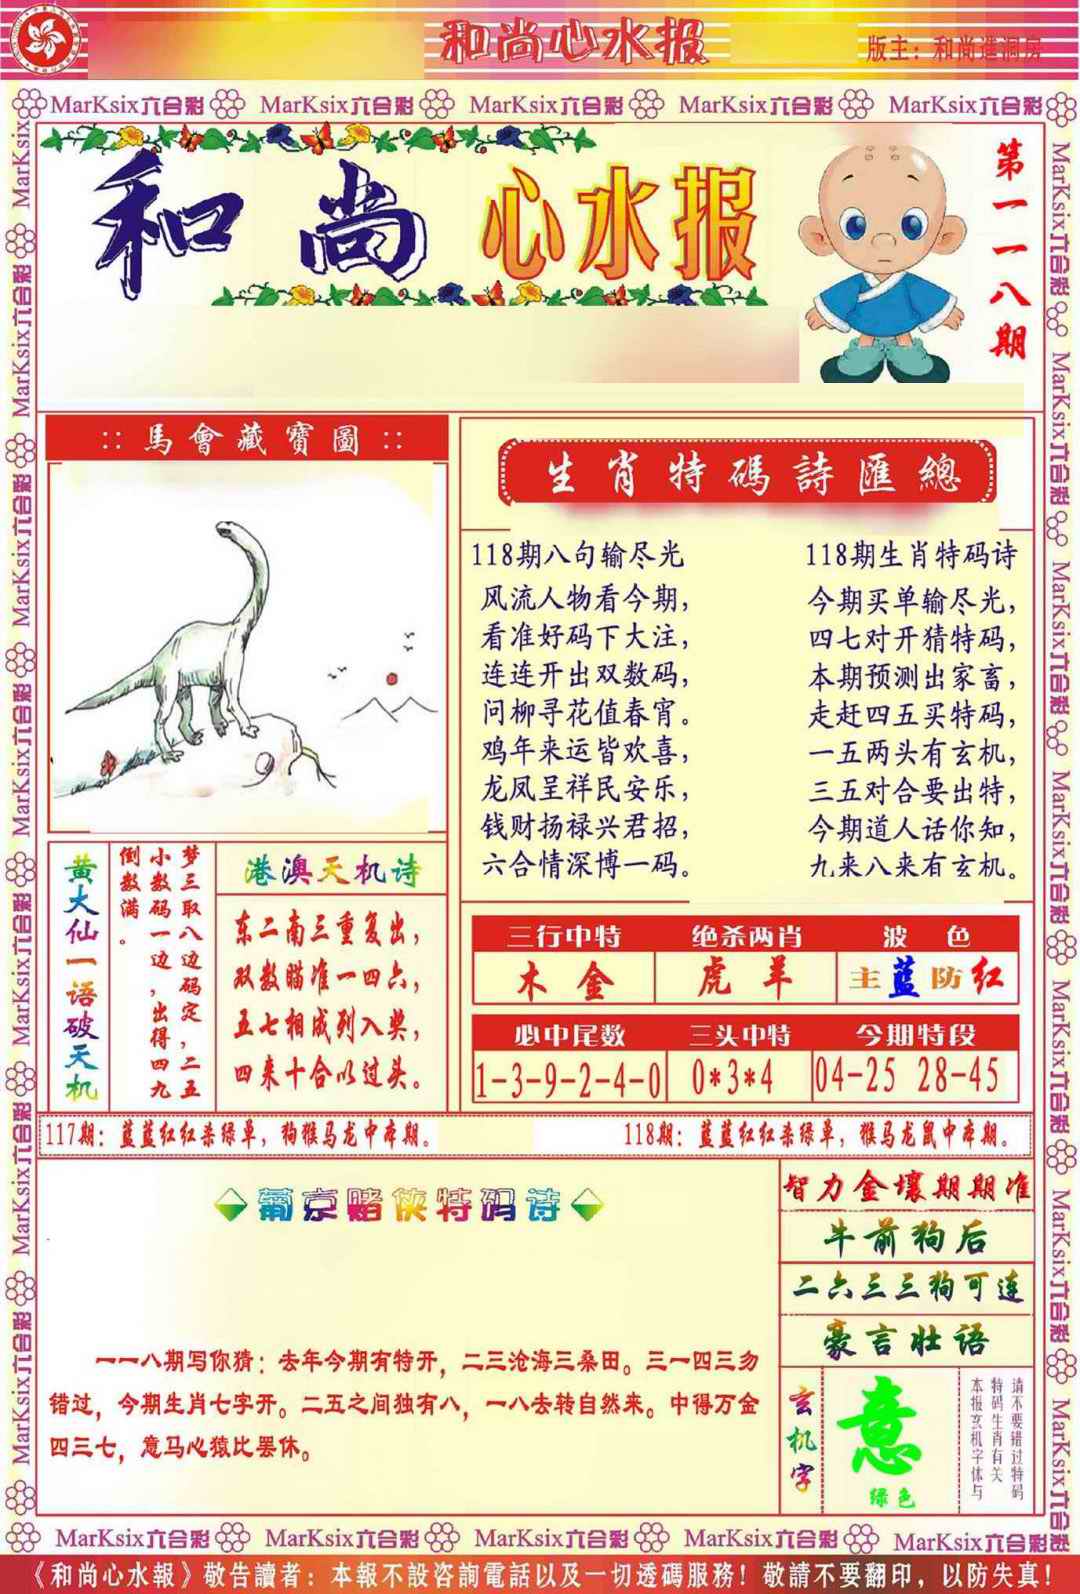 和尚心水报
版主：和尚進洞房
MarKsix六合彩 MarKsix六合彩 MarKsix六合彩 MarKsix六合彩 MarKsix六合彩
和尚心水报
第一一八期
::馬會藏寶圖::
生肖特碼詩匯總
118期八句输尽光
风流人物看今期，
看准好码下大注，
连连开出双数码，
问柳寻花值春宵。
鸡年来运皆欢喜，
龙凤呈祥民安乐，
钱财扬禄兴君招，
六合情深博一码。
118期生肖特码诗
今期买单输尽光，
四七对开猜特码，
本期预测出家畜，
走赶四五买特码，
一五两头有玄机，
三五对合要出特，
今期道人话你知，
九来八来有玄机。
黄大仙一语破天机
梦三取八边码定，二五
小数码一边，出得四九
倒数满。
港澳天机诗
东二南三重复出，
双数瞄准一四六，
五七相成列入奖，
四来十合以过头。
三行中特 绝杀两肖 波色
木金 虎羊 主蓝防红
必中尾数 三头中特 今期特段
1-3-9-2-4-0 0*3*4 04-25 28-45
117期：蓝蓝红红杀绿单，狗猴马龙中本期。
118期：蓝蓝红红杀绿单，猴马龙鼠中本期。
葡京赌侠特码诗
一一八期写你猜：去年今期有特开，二三沧海三桑田。三一四三勿
错过，今期生肖七字开。二五之间独有八，一八去转自然来。中得万金
四三七，意马心猿比罢休。
智力金壤期期准
牛前狗后
二六三三狗可连
豪言壮语
玄机字
意
绿色
请不要错过特码
特码生肖有关
本报玄机字体与
MarKsix六合彩 MarKsix六合彩 MarKsix六合彩 MarKsix六合彩 MarKsix六合彩
《和尚心水報》敬告讀者：本報不設咨詢電話以及一切透碼服務！敬請不要翻印，以防失真！